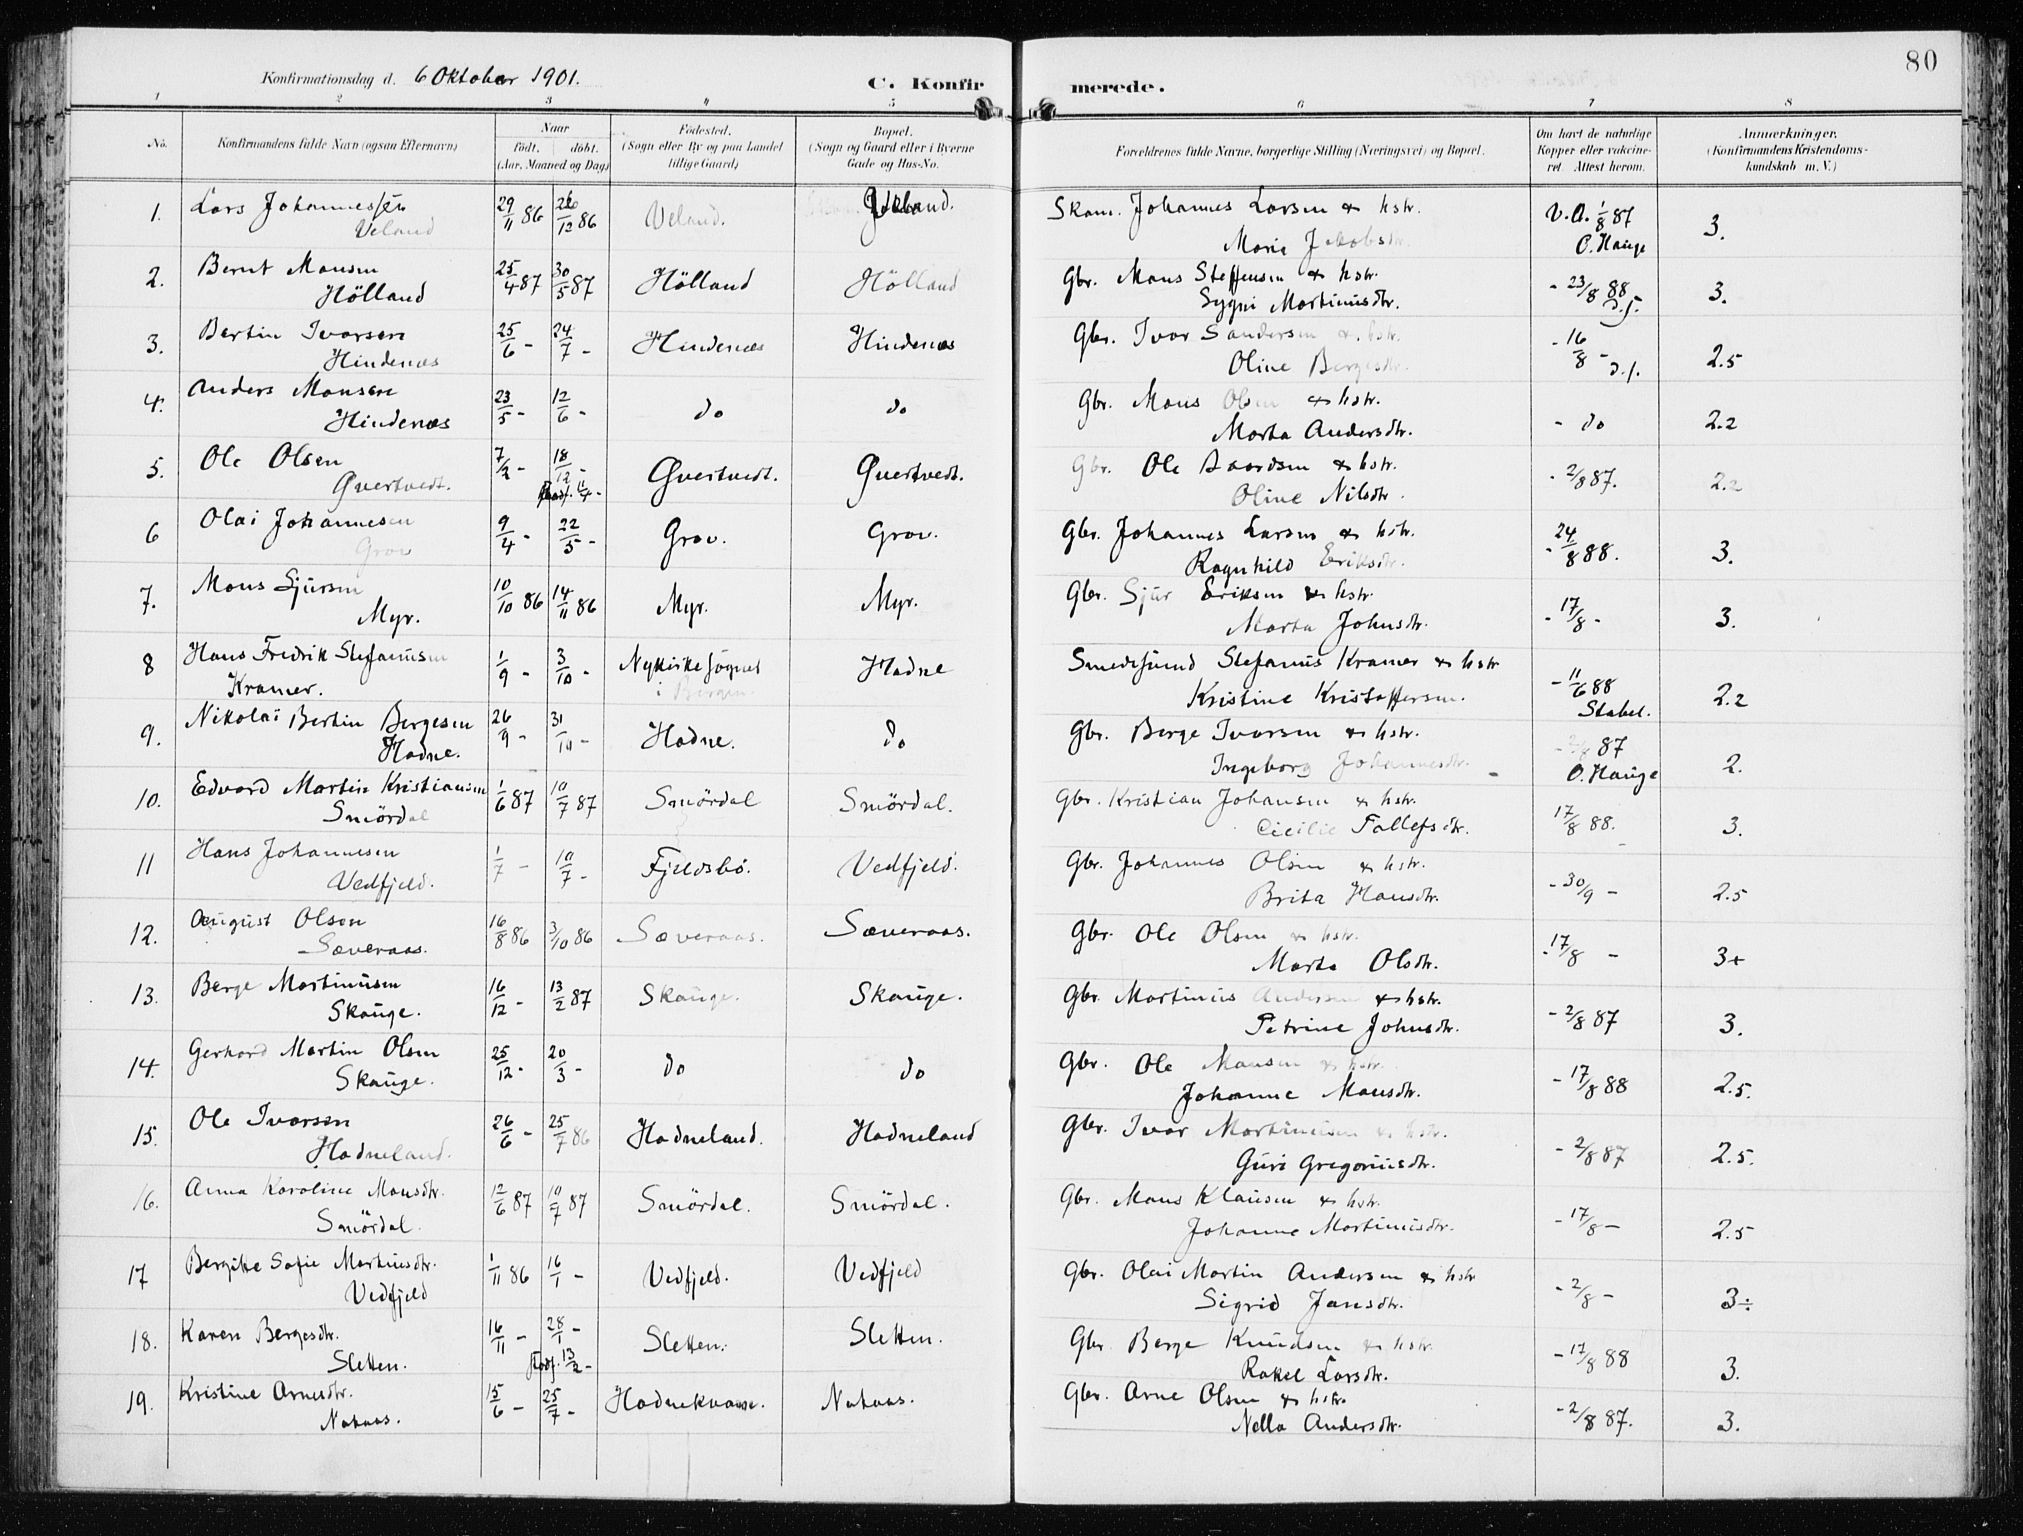 80
Konfirmationsdag d. 6 Oktober 1901. C. Konfirmerede.
1 2 3 4 5 6 7 8
No. Konfirmandens fulde Navn (ogsaa Efternavn) Naar født. døbt. (Aar, Maaned og Dag) Fødested. (Sogn eller By og paa Landet tillige Gaard) Bopæl. (Sogn og Gaard eller i Byerne Gade og Hus-No. Forældrenes fulde Navne, borgerlige Stilling (Næringsvei) og Bopæl. Om havt de naturlige Kopper eller vakcineret. Attest herom. Anmærkninger. (Konfirmandens Kristendomskundskab m. V.)
1. Lars Johannessen 29/11 86 26/12 86 Veland. Veland. Johannes Larsen & hstr. V.A. 1/8 87 3.
Veland Marie Jakobsdtr. O. Hauge
2. Bernt Monsen 25/4 87 30/5 87 Hölland Hölland Gbr. Mons Steffensen & hstr. - 23/8 88 3.
Hölland Sygni Martinusdtr.
3. Bertin Ivarsen 25/6 - 24/7 - Hindenæs Hindenæs Gbr. Ivar Sandersen & hstr. - 16/8 - 2.5
Hindenæs Oline Bergesdtr. d.s.
4. Anders Monsen 23/5 - 12/6 - do do Gbr. Mons Olsen & hstr. - do 2.2
Hindenæs Marta Andersdtr.
5. Ole Olsen 7/2 - 18/12 - Qvertvedt. Qvertvedt. Gbr. Ole Baardsen & hstr. - 2/8 87. 2.2
Qvertvedt. 11/4 - Oline Nilsdtr.
6 Olai Johannesen 9/4 - 22/5 - Grov. Grov. Gbr. Johannes Larsen & hstr. - 24/8 88. 3.
Grov Ragnhild Eriksdtr.
7. Mons Sjursen 10/10 86 14/11 86 Myr. Myr. Gbr. Sjur Eriksen & hstr. - 17/8 - 3.
Myr. Marta Johnsdtr.
8 Hans Fredrik Stefanusen 1/9 - 3/10 - Nykirkesognet Hodne Smedesvend Stefanus Kramer & hstr - 11/6 88 2.2
Kramer. i Bergen Kristine Kristoffersen. Stabel.
9. Nikolai Bertin Bergesen 26/9 - 31/10 - Hodne. do Gbr. Berge Ivarsen & hstr. - 2/8 87 2.
Hodne. Ingeborg Johannesdtr. O. Hauge
10. Edvard Martin Kristiansen 1/6 87 10/7 87 Smördal Smördal. Gbr. Kristian Johansen & hstr. 17/8 88. 3.
Smördal Cicilie Tollefsdtr.
11 Hans Johannesen 1/7 - 10/7 - Fjeldsbö. Vedfjeld. Gbr. Johannes Olsen & hstr. - 30/9 - 2.5
Vedfjeld. Brita Hansdtr.
12. August Olsen 16/8 86 3/10 86 Sæveraas. Sæveraas. Gbr. Ole Olsen & hstr. - 17/8 - 3+
Sæveraas. Marta Olsdtr.
13. Berge Martinusen 16/12 - 13/2 87 Skauge. Skauge. Gbr. Martinus Andersen & hstr. - 2/8 87 3.
Skauge. Petrine Johnsdtr.
14. Gerhard Martin Olsen 25/12 - 20/3 - do do Gbr. Ole Monsen & hstr. - 17/8 88 2.5.
Skauge. Johanne Monsdtr.
15. Ole Ivarsen 26/6 - 25/7 86 Hodneland. Hodneland Gbr. Ivar Martinusen & hstr. - 2/8 87 2.5.
Hodneland. Guri Gregoriusdtr.
16. Anna Karoline Monsdtr. 12/6 87 10/7 87 Smördal. Smördal. Gbr. Mons Klausen & hstr. - 17/8 - 2.5
Smördal. Johanne Martinusdtr.
17 Bergitte Sofie Martinsdtr. 1/11 86 16/1 - Vedfjeld. Vedfjeld Gbr. Olai Martin Andersen & hstr - 2/8 - 3÷
Vedfjeld Sigrid Jansdtr.
18. Karen Bergesdtr. 16/11 - 28/1 - Sletten. Sletten. Gbr. Berge Knudsen & hstr. - 17/8 88 3.
Sletten. 13/2 - Rakel Larsdtr.
19. Kristine Arnesdtr. 15/6 - 25/7 - Hodnekvame. Nataas. Gbr. Arne Olsen & hstr. - 2/8 87. 3.
Nataas. Nella Andersdtr.